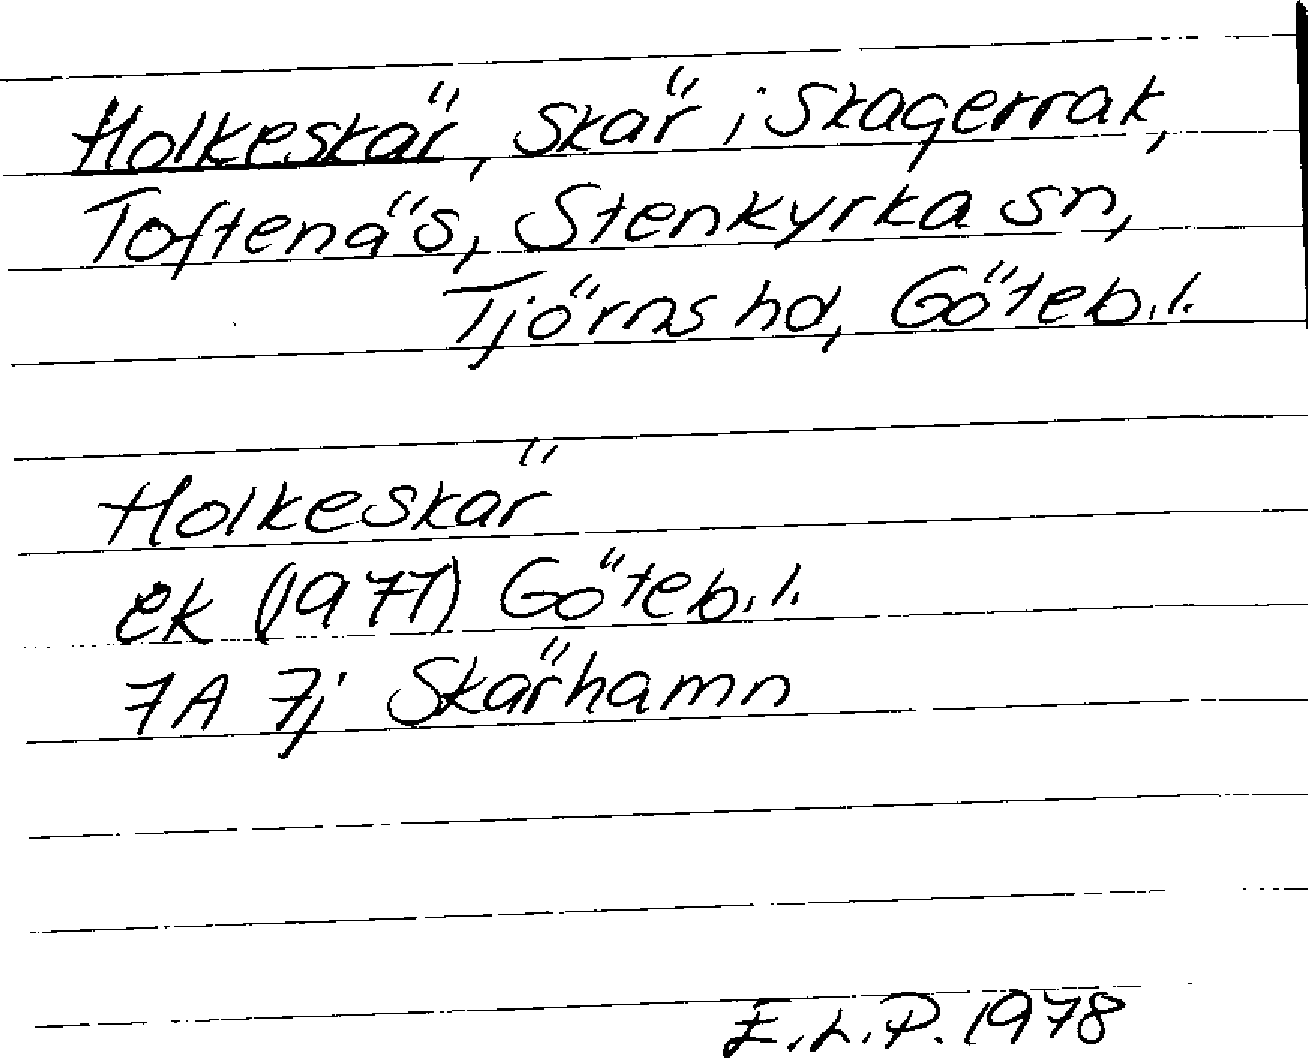 Holkeskär, skär i Skagerrak,
Toftenäs, Stenkyrka sn,
Tjörns hd, Göteb.l.
Holkeskär
ek (1977) Göteb.l.
7A 7j Skärhamn
E.L.P. 1978